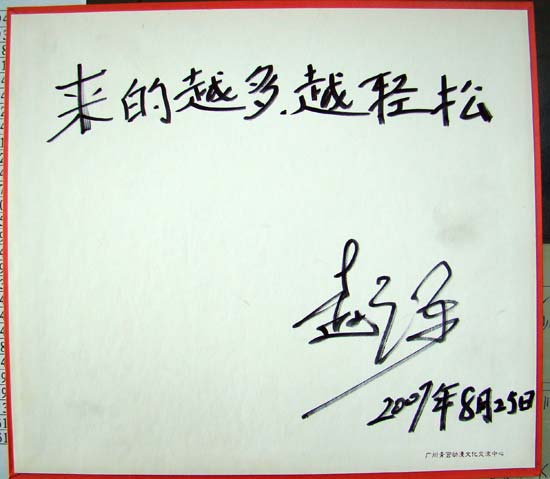 来的越多,越轻松
赵
2007年8月25日
广州青宫动漫文化交流中心